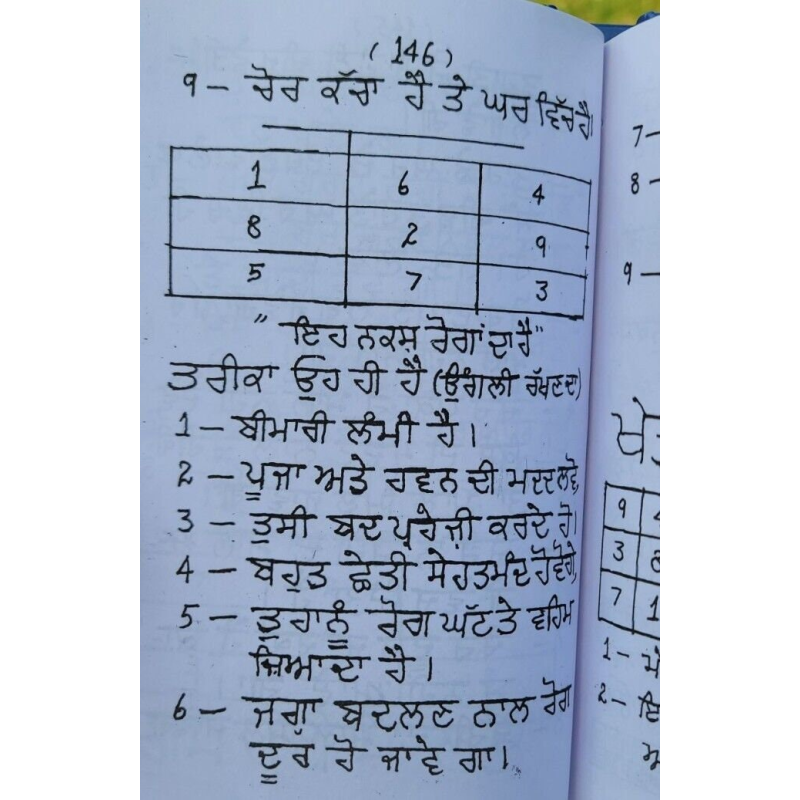 (146)
9 - ਚੋਰ ਕੱਚਾ ਹੈ ਤੇ ਘਰ ਵਿੱਚ ਹੈ।
1 6 4
8 2 9
5 7 3
"ਇਹ ਨਕਸ਼ ਰੋਗਾਂ ਦਾ ਹੈ"
ਤਰੀਕਾ ਉਹ ਹੀ ਹੈ (ਉਂਗਲੀ ਰੱਖਣ ਦਾ)
1 - ਬੀਮਾਰੀ ਲੰਮੀ ਹੈ।
2 - ਪੂਜਾ ਅਤੇ ਹਵਨ ਦੀ ਮਦਦ ਲਵੋ,
3 - ਤੁਸੀ ਬਦ ਪ੍ਰਹੇਜ਼ੀ ਕਰਦੇ ਹੋ।
4 - ਬਹੁਤ ਛੇਤੀ ਸੇਹਤਮੰਦ ਹੋਵੋਗੇ,
5 - ਤੁਹਾਨੂੰ ਰੋਗ ਘੱਟ ਤੇ ਵਹਿਮ
ਜ਼ਿਆਦਾ ਹੈ।
6 - ਜਗਾ ਬਦਲਣ ਨਾਲ ਰੋਗ
ਦੂਰ ਹੋ ਜਾਵੇ ਗਾ।
7 -
8 -
9 -
9
3
7 1
1 -
2 -